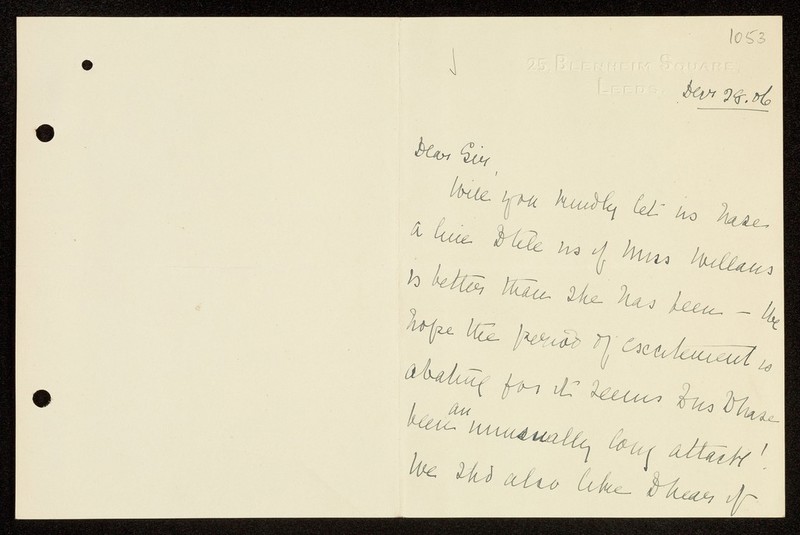 1053
25 Blenheim Square,
Leeds.
Decr 28.06
Dear Sir,
Will you kindly let us have
a line to tell us if Miss Willans
is better than she has been – We
hope the period of excitement is
abating for it seems to us to have
been an unusually long attack!
We shd also like to hear if